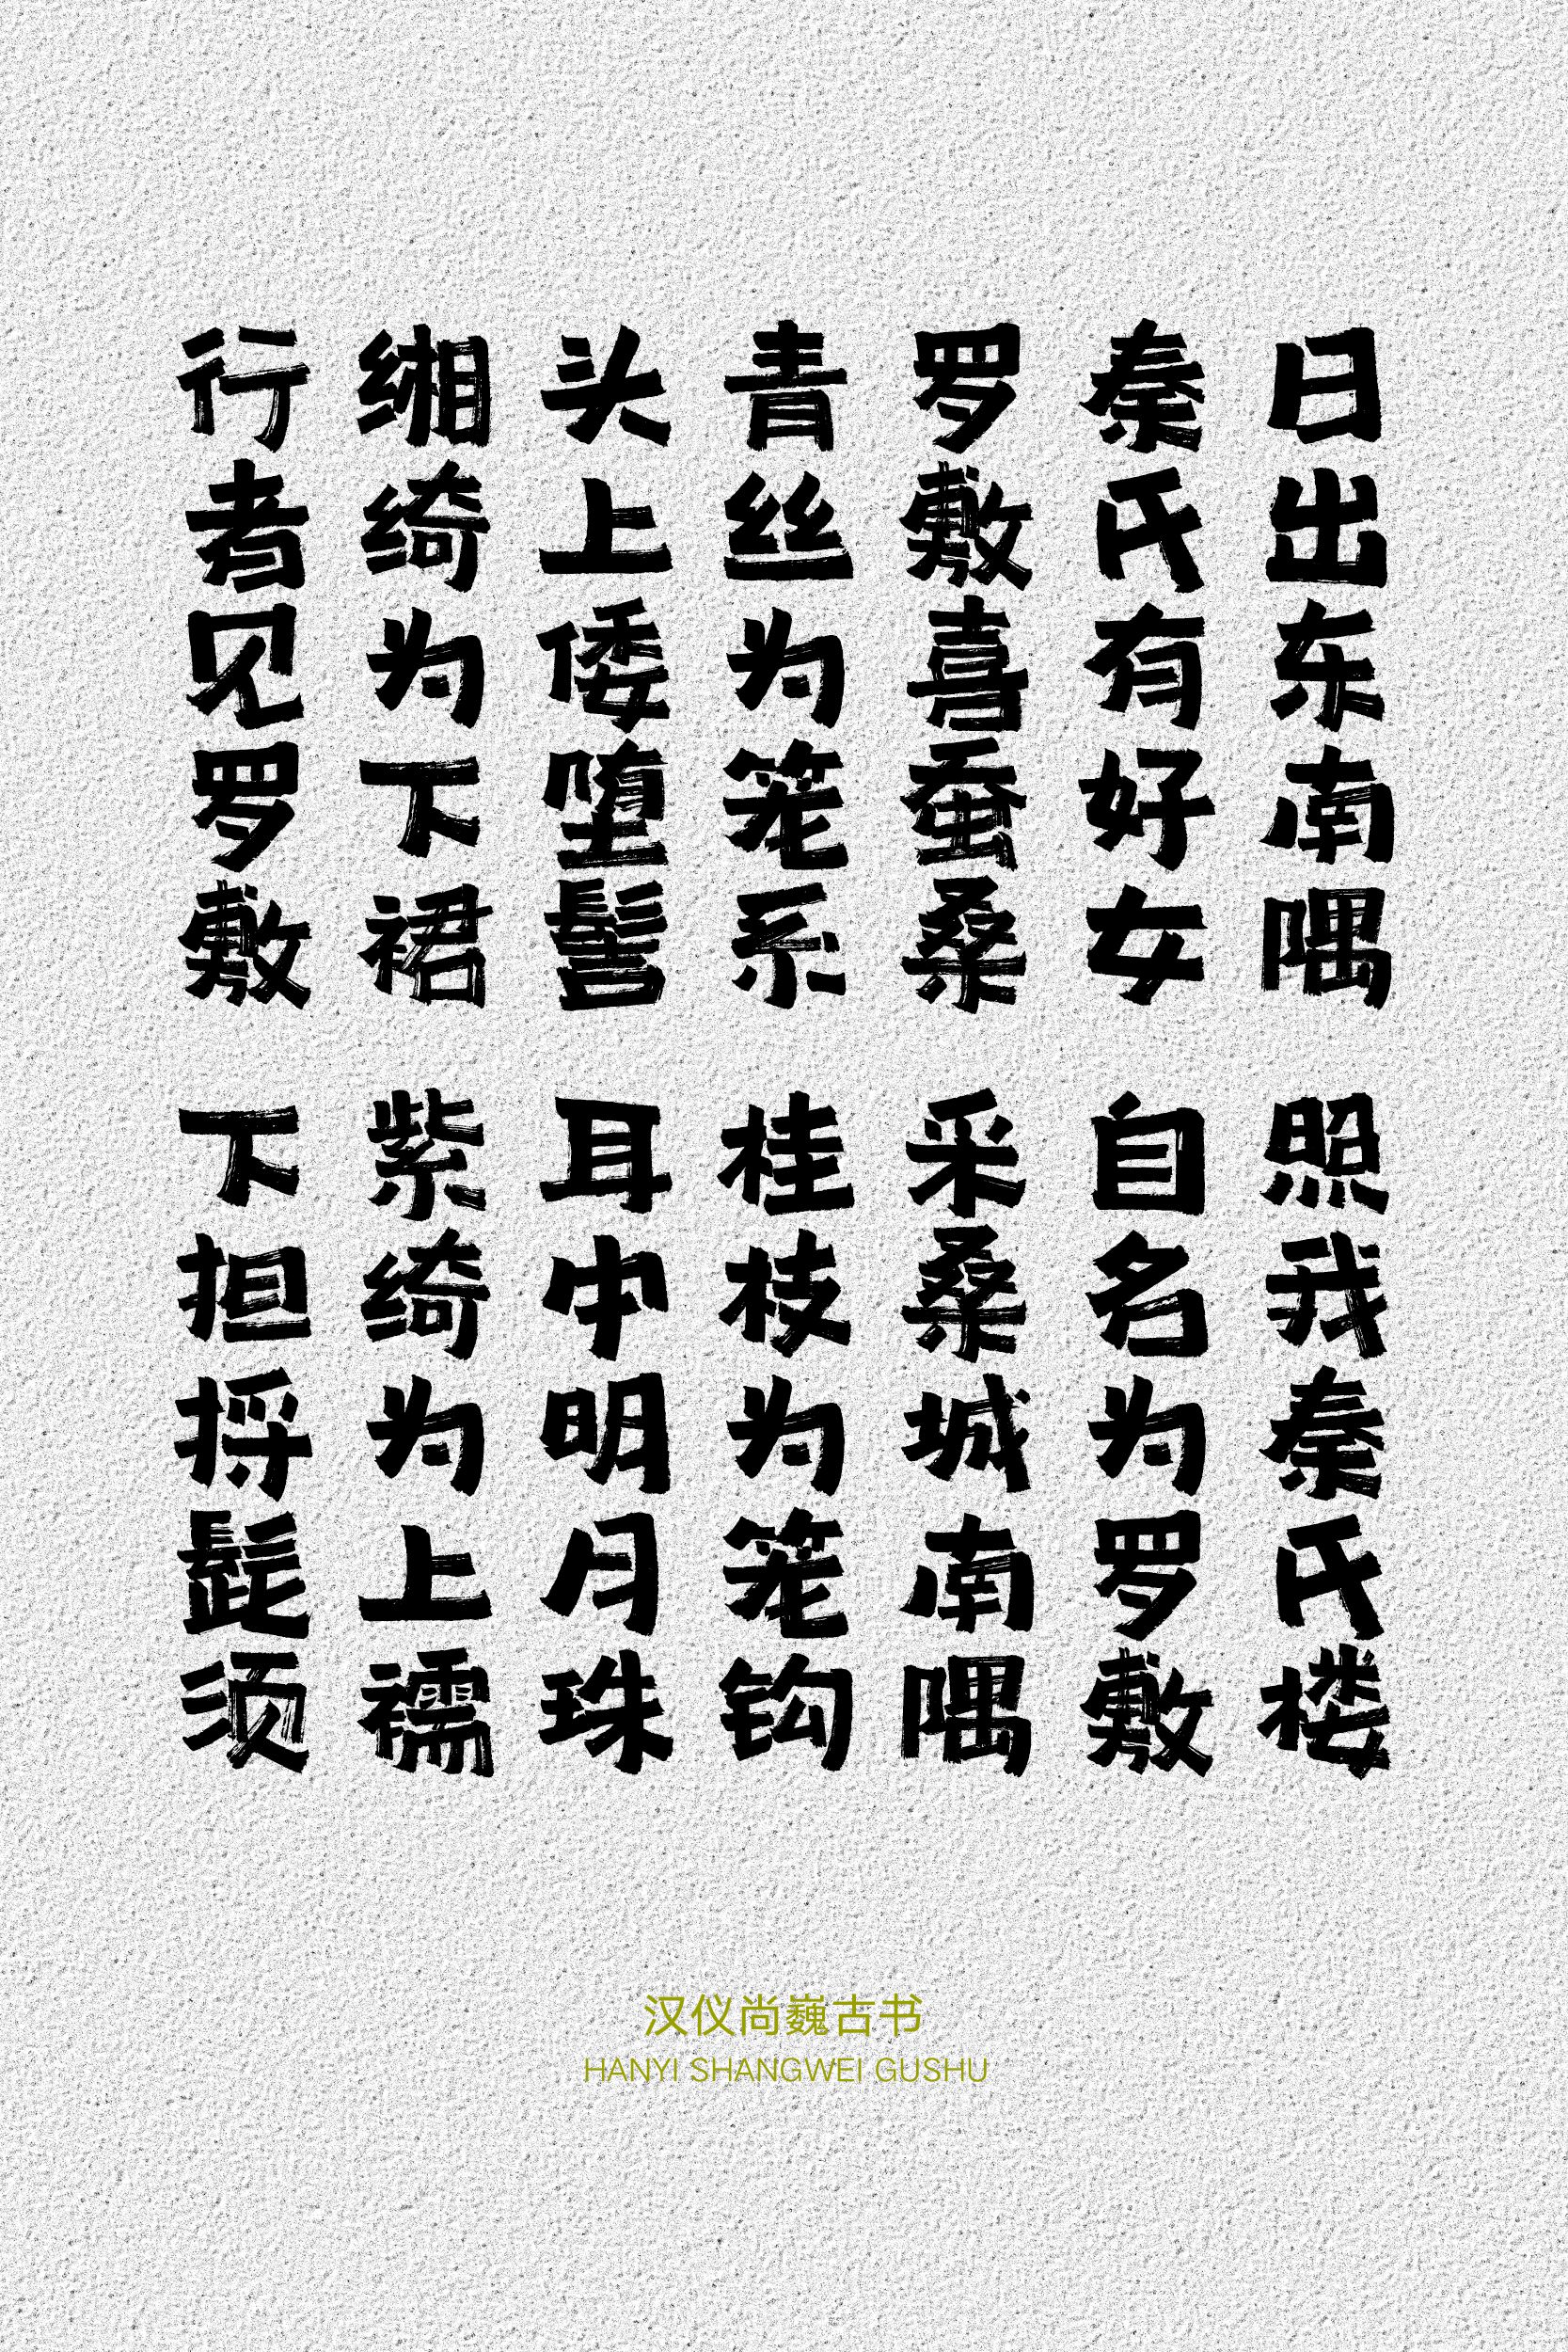 日出东南隅 照我秦氏楼
秦氏有好女 自名为罗敷
罗敷喜蚕桑 采桑城南隅
青丝为笼系 桂枝为笼钩
头上倭堕髻 耳中明月珠
缃绮为下裙 紫绮为上襦
行者见罗敷 下担捋髭须
汉仪尚巍古书
HANYI SHANGWEI GUSHU